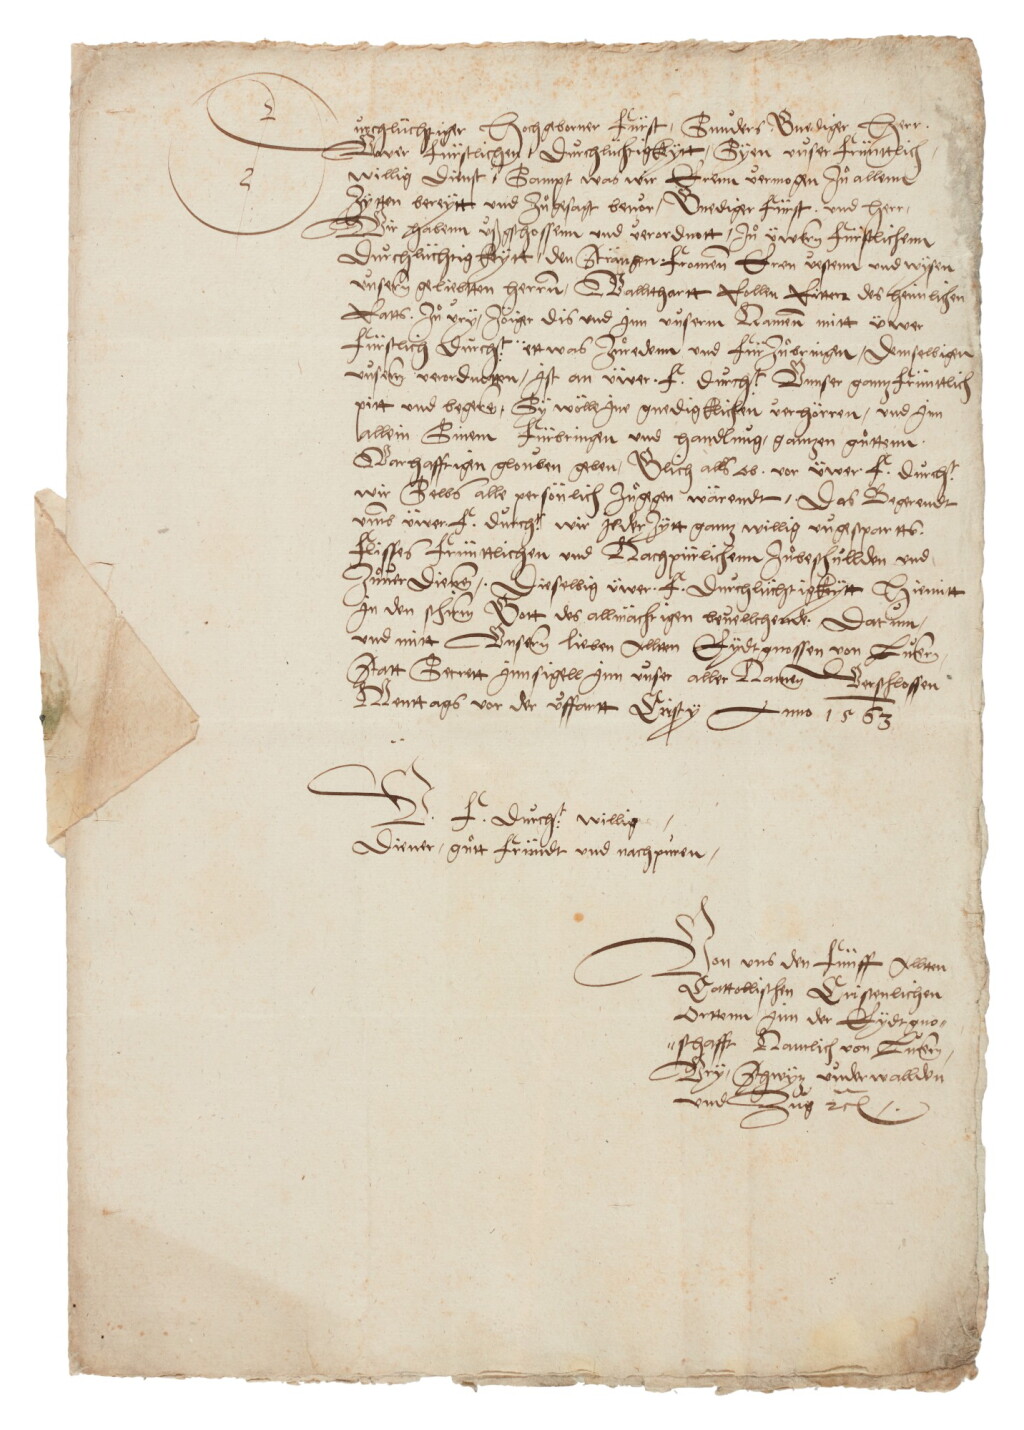 Durchlüchtiger Hochgeborner Fürst, Sunders Gnediger Herr.
Üwer Fürstlichen Durchlüchtigkeytt, Syen unser früntlich,
willig Dienst, Sampt was wir Eeren vermogen Zů allenn
Zytten bereytt und Zůgesagt bevor, Gnediger Fürst. und Herr,
Wir habenn ußgschossenn und verordnott, Zů üwern Fürstlichenn
Durchlüchtigkeytt, den Strängen fromen Eren vestenn und wysen
unsern geliebtten herren, Wallthartt Rollen Ritter des heimlichen
Ratts. Zů Ury, Zöiger dis und Inn unserm Namen mitt üwer
Fürstlich Durch.t ettwas Zůredenn und Fürzůbringen, Demselbigen
unserm verordnetten, Ist an üwer. F. Durch.t Unnser gantz früntlich
pitt und begere, Sy wölle Ine gnedigklichen verhörren, und Inn
allein Sinem Fürbringen und handlung, gantzen gůttenn.
Warhafftigen glouben geben, Glich alls ob. vor üwer. F. Durch.t
wir Selbs alle persönlich Zůgegen wärendt, Das Begerendt
umb üwer F. Durch.t wir Jeder Zytt gantz willig ungespartts.
Flisses früntlichen und Nachpürlichenn Zůbeschullden und
Zuver Dienen, Dieselbig üwer. F. Durchlüchtigkeytt Hiemitt
In den schirm Gott des allmächtigen bevellchende. Datum,
und mitt Unsern lieben Alltten Eydtgnossen von Lutzern,
Statt Secrett Innsigell Inn unser aller Namen Verschlossen
Menttags vor der Uffartt Cristy Anno 1563
Ü. F. Durch.t willig,
Diener, gůtt fründt und nachpuren,
Von uns den fünff Alltten
Cattollischen Cristenlichen
Orttenn Inn der Eydtgno-
-schafft Namlich von Lutzern,
Ury, Schwytz underwallden
und Zug etc.